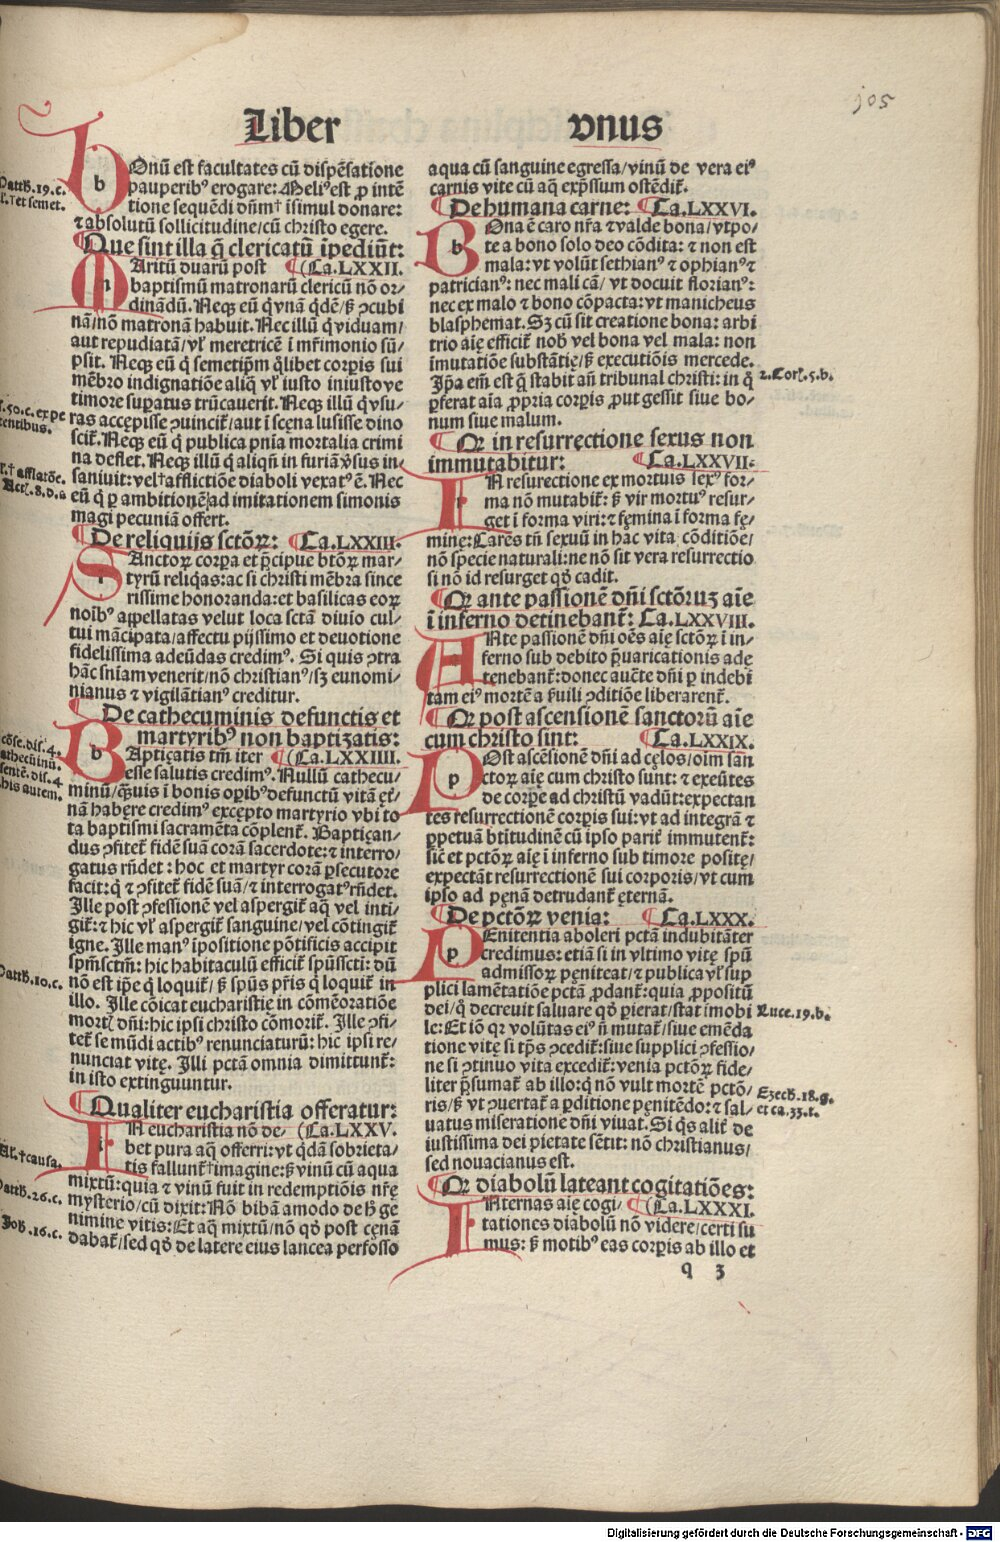 105
Liber vnus
BOnū est facultates cū dispēsatione
pauperibꝰ erogare: Meliꝰ est ꝓ intē
tione sequēdi dn̄m † īsimul donare:
⁊ absolutū sollicitudine/cū christo egere.
¶ Que sint illa q̄ clericatū īpediūt:
MAritū duarū post ¶ (Ca.LXXII.
baptismū matronarū clericū nō or-
dinādū. Neqꝫ eū q̇ vnā q̇dē/ ß ↄcubi
nā/nō matronā habuit. Nec illū q̇ viduam/
aut repudiatā/vl̕ meretricē ī mr̄imonio sū/
psit. Neqꝫ eū q̇ semetip̄m q̇libet corꝑis sui
mēbro indignatiōe aliq̄ vl̕ iusto iniustove
timore suꝑatus trūcauerit. Neqꝫ illū q̇ vsu/
ras accępisse ꝯuincit᷑/aut ī scęna lusisse dino
scit᷑. Neqꝫ eū q̇ publica pn̄ia mortalia crimi
na deflet. Neqꝫ illū q̇ aliqn̄ in furiā v̓sus in/
saniuit: vel † afflictiōe diaboli vexatꝰ ē. Nec
eū q̇ ꝑ ambitionē ad imitationem simonis
magi pecuniā offert.
¶ De reliquijs sctōꝝ: ¶ Ca.LXXIII.
SAnctoꝝ corꝑa et p̄cipue btōꝝ mar/
tyrū reliq̇as: ac si christi mēbra since
rissime honoranda: et basilicas eoꝝ
noībꝰ appellatas velut loca sctā diuio cul/
tui mācipata/affectu pijssimo et deuotione
fidelissima adeūdas credimꝰ. Si quis ↄtra
hāc sn̄iam venerit/nō christianꝰ/sꝫ eunomi/
nianus ⁊ vigilātianꝰ creditur.
¶ De cathecuminis defunctis et
martyribꝰ non baptizatis:
BAptiçatis tm̄ iter ¶ (Ca.LXXIIII.
esse salutis credimꝰ. Nullū cathecu/
minū/q̄uis ī bonis oꝑibꝰ defunctū vitā ęt̕/
nā habęre credimꝰ excępto martyrio vbi to
ta baptismi sacramēta cōplent᷑. Baptiçan/
dus ↄfitet᷑ fidē suā corā sacerdote: ⁊ interro/
gatus rn̄det: hoc et martyr corā ꝑsecutore
facit: q̇ ⁊ ↄfitet᷑ fidē suā/⁊ interrogatꝰ rn̄det.
Ille post ↄfessionē vel aspergit᷑ aq̄ vel inti/
git᷑: ⁊ hic vl̕ aspergit᷑ sanguine/vel cōtingit᷑
igne. Ille manꝰ īpositione pōtificis accipit
spm̄sctm̄: hic habitaculū efficit᷑ spūsscti: dū
nō est ip̄e q̇ loquit᷑/ ß spūs pr̄is q̇ loquit᷑ in
illo. Ille cōicat eucharistię in cōmēoratiōe
mortꝭ dn̄i: hic ipsi christo cōmorit᷑. Ille ↄfi/
tet᷑ se mūdi actibꝰ renunciaturū: hic ipsi re/
nunciat vitę. Illi pctā omnia dimittunt᷑:
in isto extinguuntur.
¶ Qualiter eucharistia offeratur:
IN eucharistia nō de/ (Ca.LXXV.
bet pura aq̄ offerri: vt q̇dā sobrieta/
tis fallunt᷑ † imagine: ß vinū cū aqua
mixtū: quia ⁊ vinū fuit in redemptiōis nr̄ę
mysterio/cū dixit: Nō bibā amodo de h̄ gē
nimine vitis: Et aq̄ mixtū/nō qḋ post cęnā
dabat᷑/sed qḋ de latere eius lancea perfosso
Matth.19.c.
50.c. ex pe
tentibus.
† afflatōe.
Act.8.d.
cōse. dis. 4.
his autem.
Matth.10.c.
Al. † causa.
Matth.26.c.
Joh.16.c.
aqua cū sanguine egressa/vinū de vera eiꝰ
carnis vite cū aq̄ exp̄ssium ostēdit᷑.
¶ De humana carne: ¶ Ca.LXXVI.
BOna ē caro nr̄a ⁊ valde bona/vtpo/
te a bono solo deo cōdita: ⁊ non est
mala: vt volūt sethianꝰ ⁊ ophianꝰ ⁊
patricianꝰ: nec mali cā/ vt docuit florianꝰ:
nec ex malo ⁊ bono cōpacta: vt manicheus
blasphemat. Sꝫ cū sit creatione bona: arbi
trio aię efficit᷑ nob̄ vel bona vel mala: non
īmutatiōe substātię/ß executiōis mercede.
Ip̄a em̄ est q̄ stabit an̄ tribunal christi: in q̇
ꝑferat aīa ꝓpria corꝑis ꝓut gessit siue bo/
num siue malum.
¶ Qꝛ in resurrectione sexus non
immutabitur: ¶ Ca.LXXVII:
IN resurectione ex mortuis sexꝰ for/
ma nō mutabit᷑: ß vir mortuꝰ resur/
get ī forma viri: ⁊ fęmina ī forma fę/
minę: Carēs tn̄ sexuū in hac vita cōditiōe/
nō specie naturali: ne nō sit vera resurrectio
si nō id resurget qḋ cadit.
¶ Qꝛ ante passionē dn̄i sctōruꝫ aīe
ī inferno detinebant᷑: Ca.LXXVIII.
ANte passionē dn̄i oēs aię sctōꝝ ī in/
ferno sub debito p̄uaricationis adę
tenebant᷑: donec auctē dn̄i ꝑ indebi
tam eiꝰ mortē a ẜuili ↄditiōe liberarent᷑.
¶ Qꝛ post ascensionē sanctorū aīe
cum christo sint: ¶ Ca.LXXIX.
POst ascēsionē dn̄i ad cęlos/oīm san
ctoꝝ aię cum christo sunt: ⁊ exeūtes
de corꝑe ad christū vadūt: expectan
tes resurrectionē corꝑis sui: vt ad integrā ⁊
ꝑpetuā btītudinē cū ipso parit᷑ immutent᷑:
sic̄ et pctōꝝ aię ī inferno sub timore positę/
expectāt resurrectionē sui corporis/vt cum
ipso ad pęnā detrudant᷑ ęternā.
¶ De pctōꝝ venia: ¶ Ca.LXXX.
PEnitentia aboleri pctā indubitāter
credimus: etiā si in vltimo vitę spū
admissoꝝ pęniteat/⁊ publica vl̕ sup
plici lamētatiōe pctā ꝓdant᷑: quia ꝓpositū
dei/q̇ decreuit saluare qḋ ꝑierat/stat imobi
le: Et iō qꝛ volūtas eiꝰ n̄ mutat᷑/siue emēda
tione vitę si tp̄s ↄcedit᷑: siue supplici ↄfessio/
ne si ↄtinuo vita excedit᷑: venia pctōꝝ fide/
liter p̄sumat᷑ ab illo: q̇ nō vult mortē pctō/
ris/ß vt ↄuertat᷑ a ꝑditione pęnitēdo: ⁊ sal/
uatus miseratione dn̄i viuat. Si q̇s alit᷑ de
iustissima dei pietate sētit: nō christianus/
sed nouacianus est.
¶ Qꝛ diabolū lateant cogitatiōes:
INternas aię cogi/ ¶ (Ca.LXXXI.
tationes diabolū nō videre/certi su
mus: ß motibꝰ eas corꝑis ab illo et
2.Corꝭ.5.b.
Luce.19.b.
Ezech.18.g.
et ca.33.c.
q 3
Digitalisierung gefördert durch die Deutsche Forschungsgemeinschaft - DFG